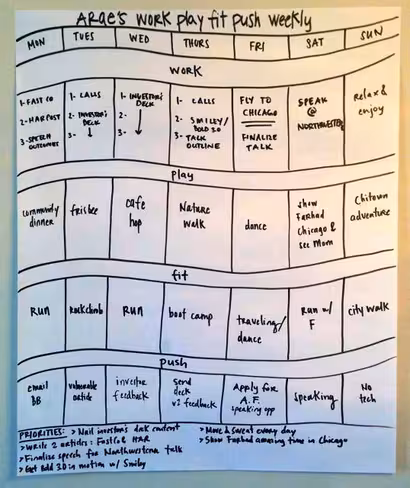 Arge's work play fit push weekly
MON TUES WED THURS FRI SAT SUN
WORK
1- FAST CO
2- HAR POST
3- SPEECH OUTCOMES
1- CALLS
2- INVESTORS DECK
3-
1- INVESTORS DECK
2-
3-
1- CALLS
2- SMILEY/ BOLD 3.0
3- TALK OUTLINE
FLY TO
CHICAGO
FINALIZE
TALK
SPEAK
@
NORTHWESTERN
Relax &
enjoy
play
community
dinner
frisbee
cafe
hop
Nature
walk
dance
show
Farhad
Chicago &
see Mom
Chitown
adventure
fit
RUN
rockclimb
RUN
boot camp
traveling/
dance
RUN w/
F
city walk
push
email
DB
vulnerable
article
investor
feedback
send
deck
v1 feedback
Apply for
A.F.
speaking opp
Speaking
No
tech
PRIORITIES: > Nail investors deck content
> Write 2 articles: FastCo & HAR
> Finalize speech for Northwestern talk
> Get Bold 3.0 in motion w/ Smiley
> Move & sweat every day
> Show Farhad amazing time in Chicago